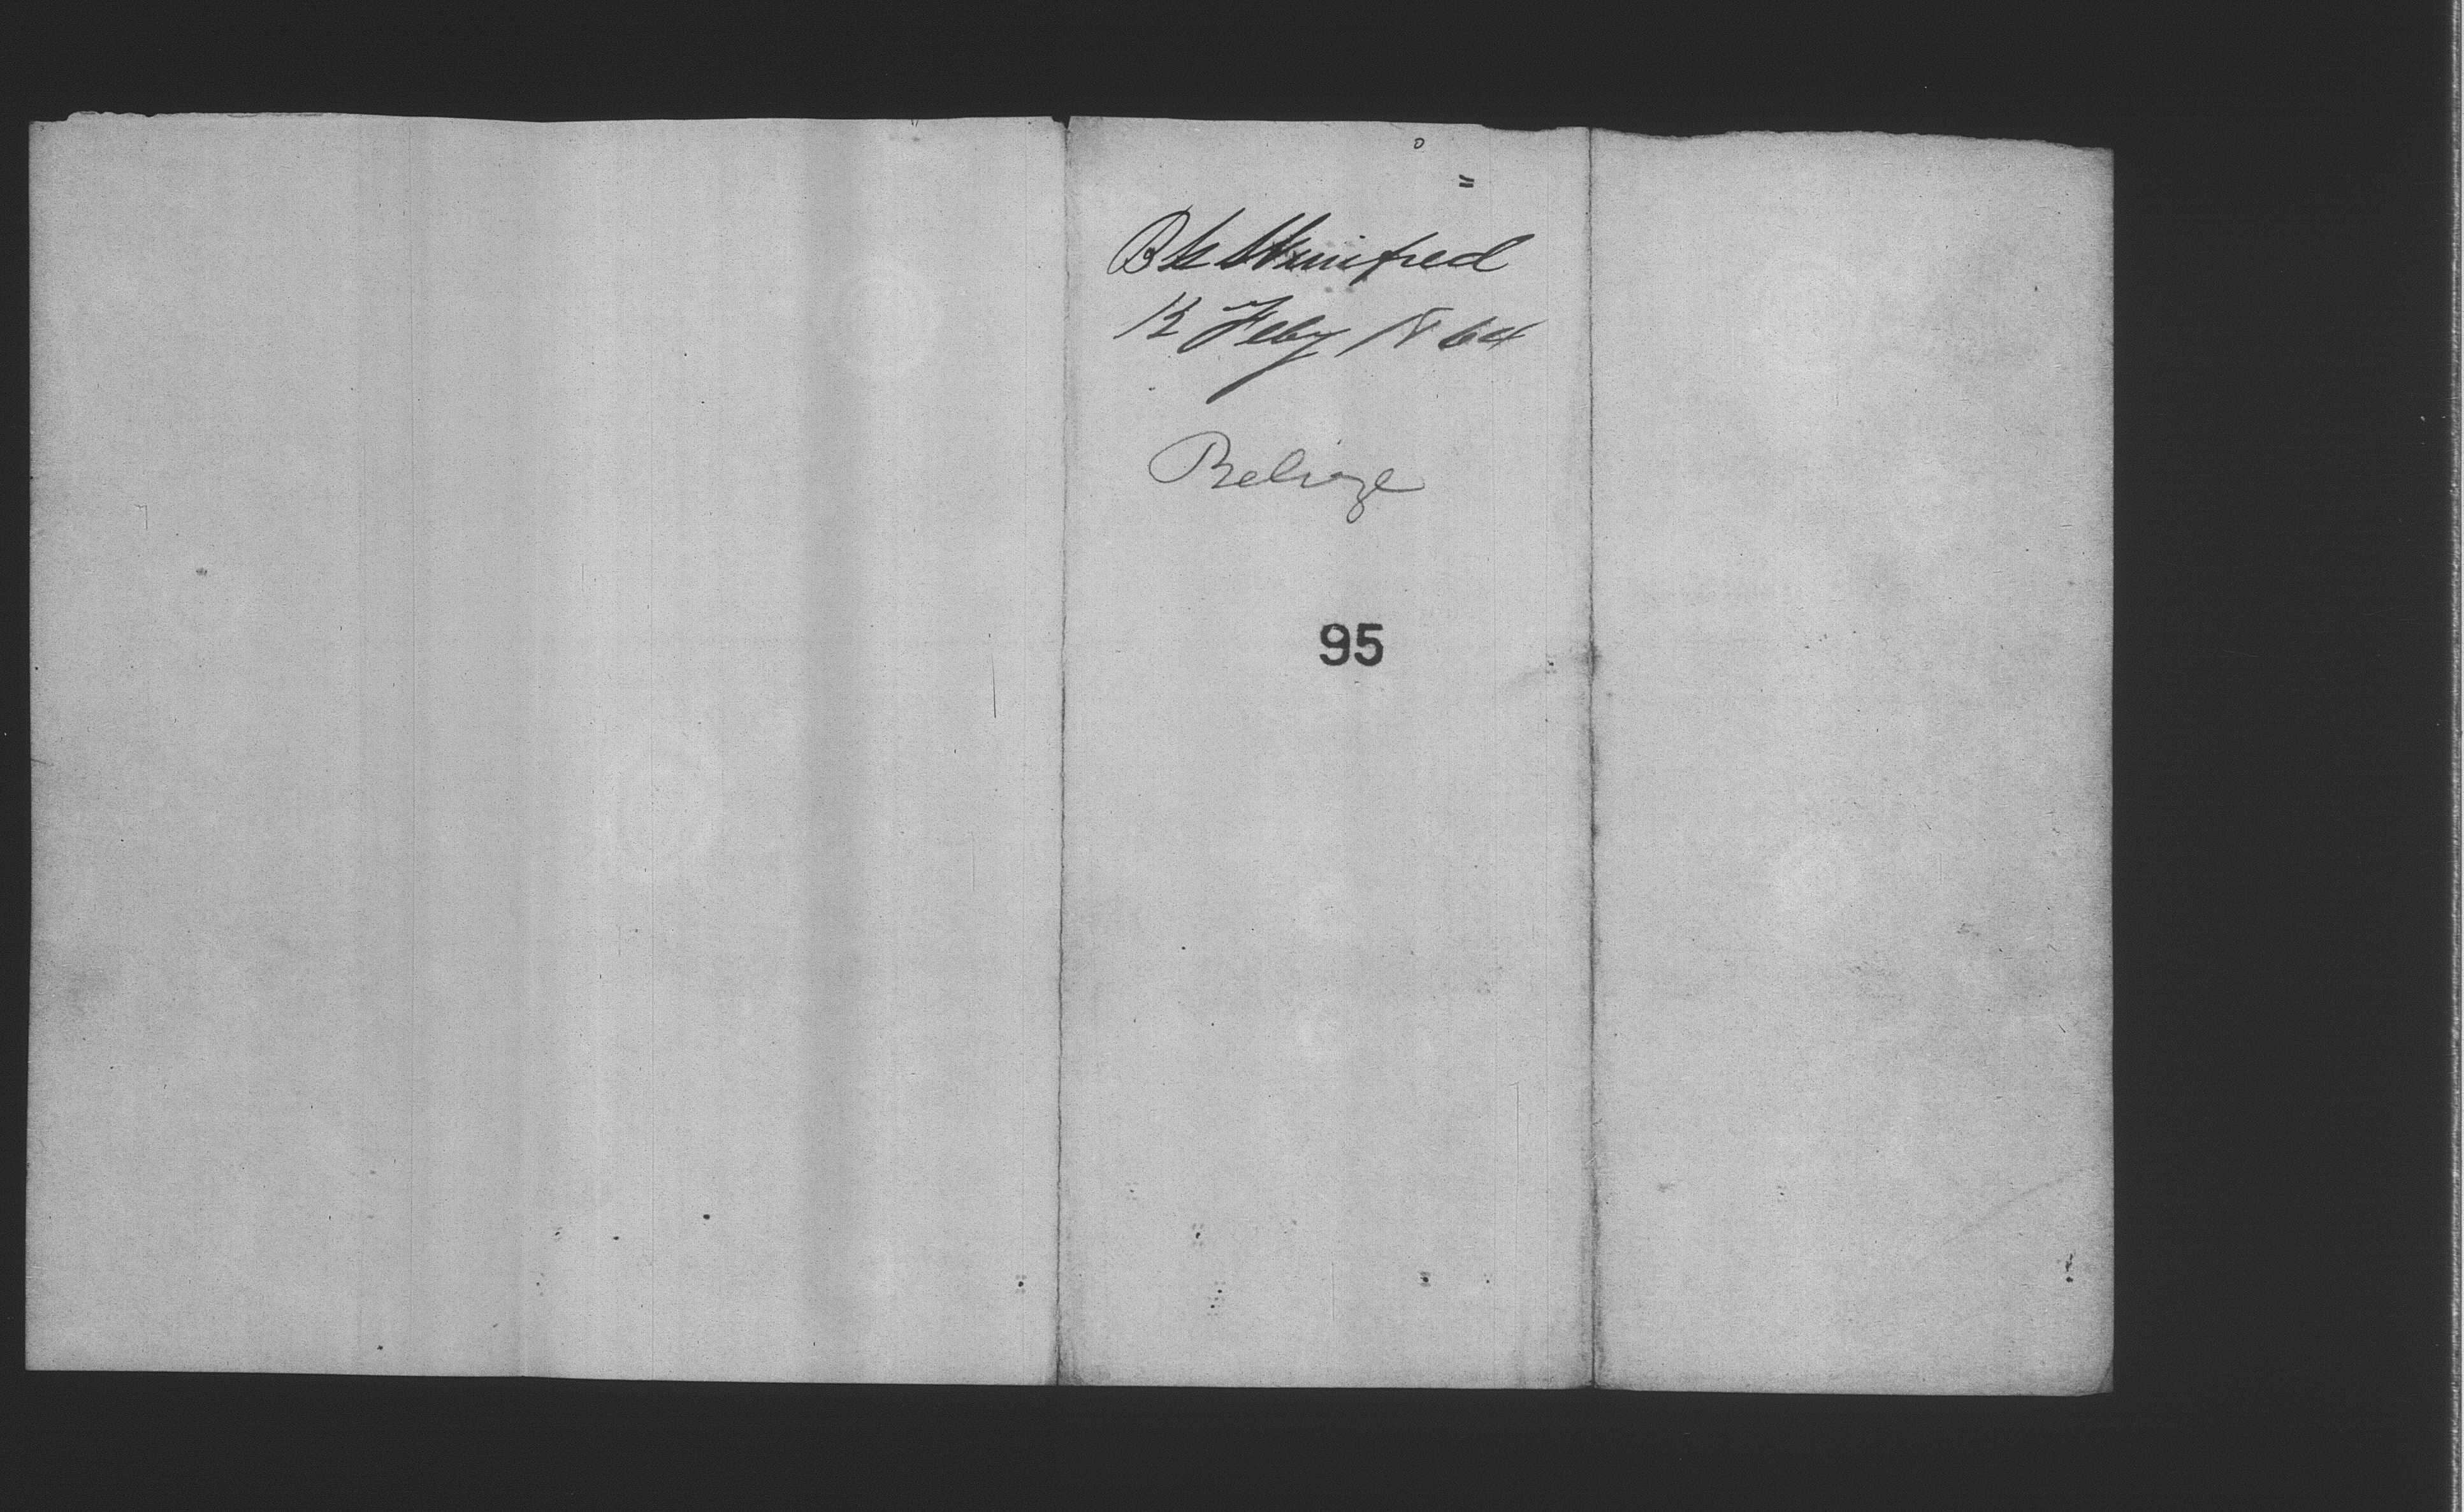 Bk Winifred
12 Feby 1864
Belize
95